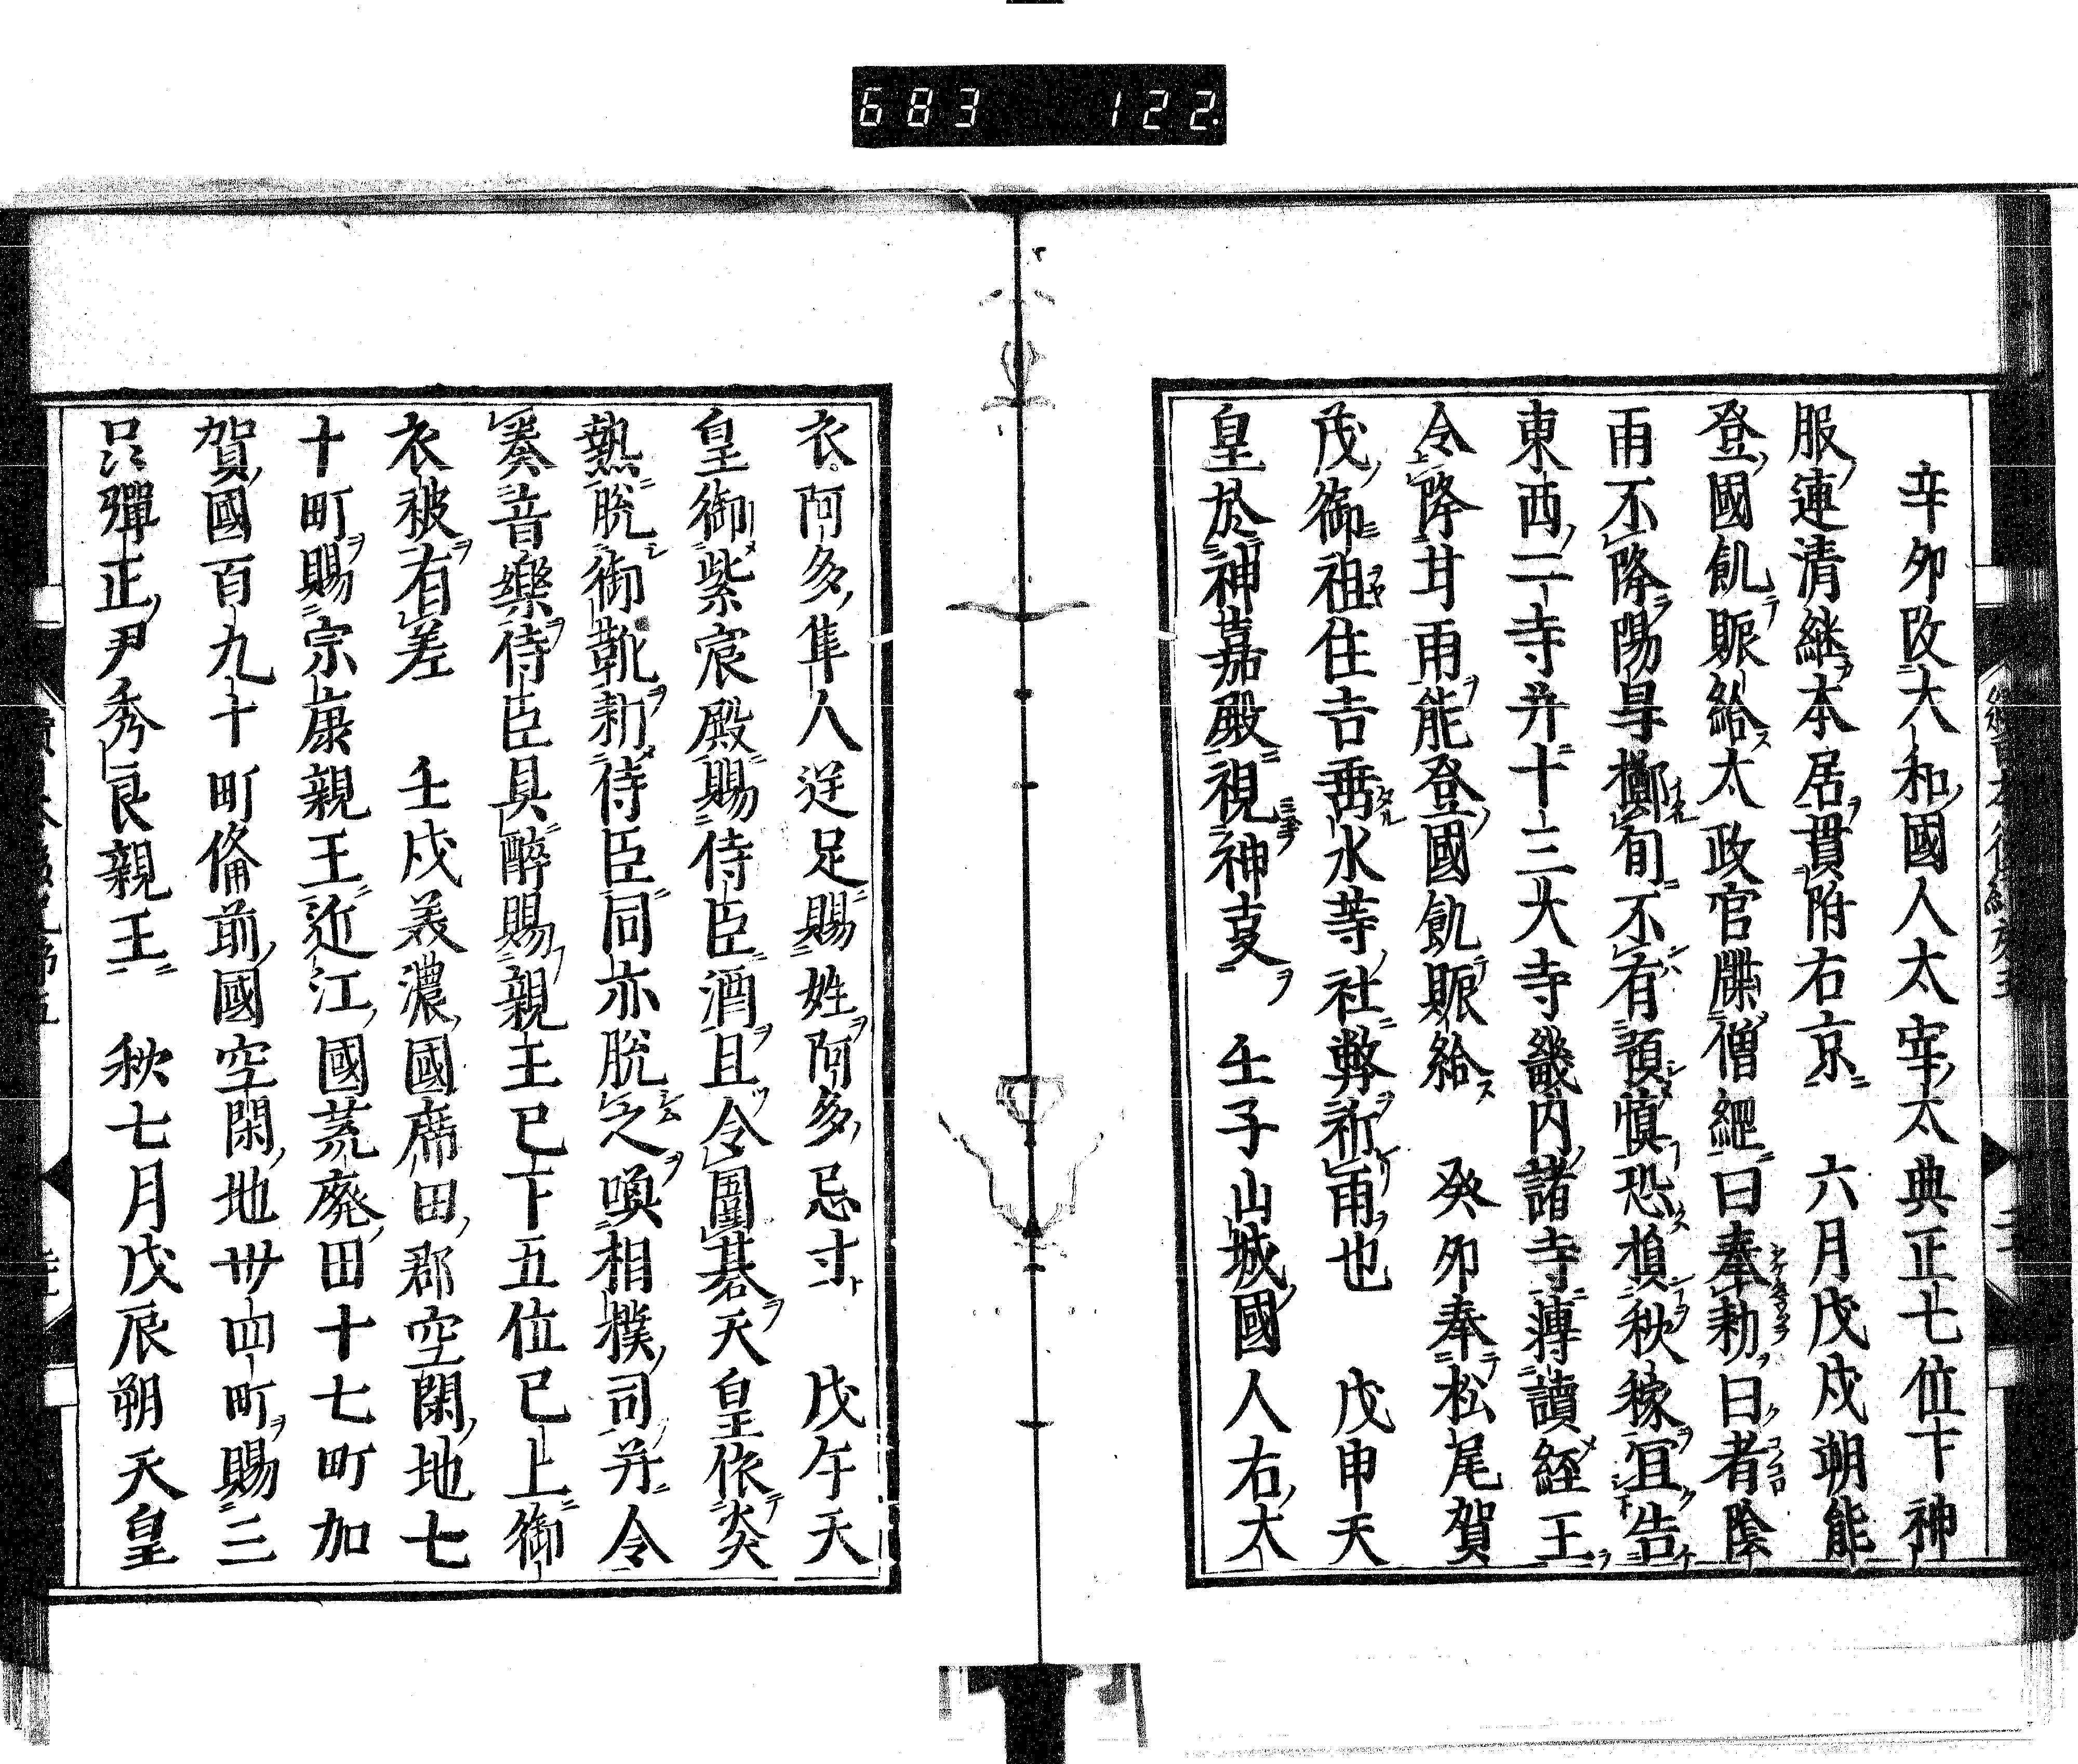 683 122
辛夘改大和國人太宰太典正七位下神
服連清継本居貫附右京 六月戊戌朔能
登國飢賑給太政官牒僧綱曰奉勅曰者陰
雨不降陽旱擲旬不有預慎恐損秋稼宜告
東西二寺并十三大寺畿内諸寺轉讀經王
令降甘雨能登國飢賑給 癸夘奉松尾賀
茂御祖住吉垂水等社弊祈雨也 戊申天
皇於神嘉殿視神事 壬子山城國人右大
衣阿多隼人逆足賜姓阿多忌寸 戊午天
皇御紫宸殿賜侍臣酒且令圍碁天皇依炎
熱脱御靴新侍臣同亦脱之喚相撲司并令
奏音樂侍臣具醉賜親王已下五位已上御
衣被有差 壬戌美濃國席田郡空閑地七
十町賜宗康親王近江國荒廢田十七町加
賀國百九十町備前國空閑地丗四町賜三
品彈正尹秀良親王 秋七月戊辰朔天皇